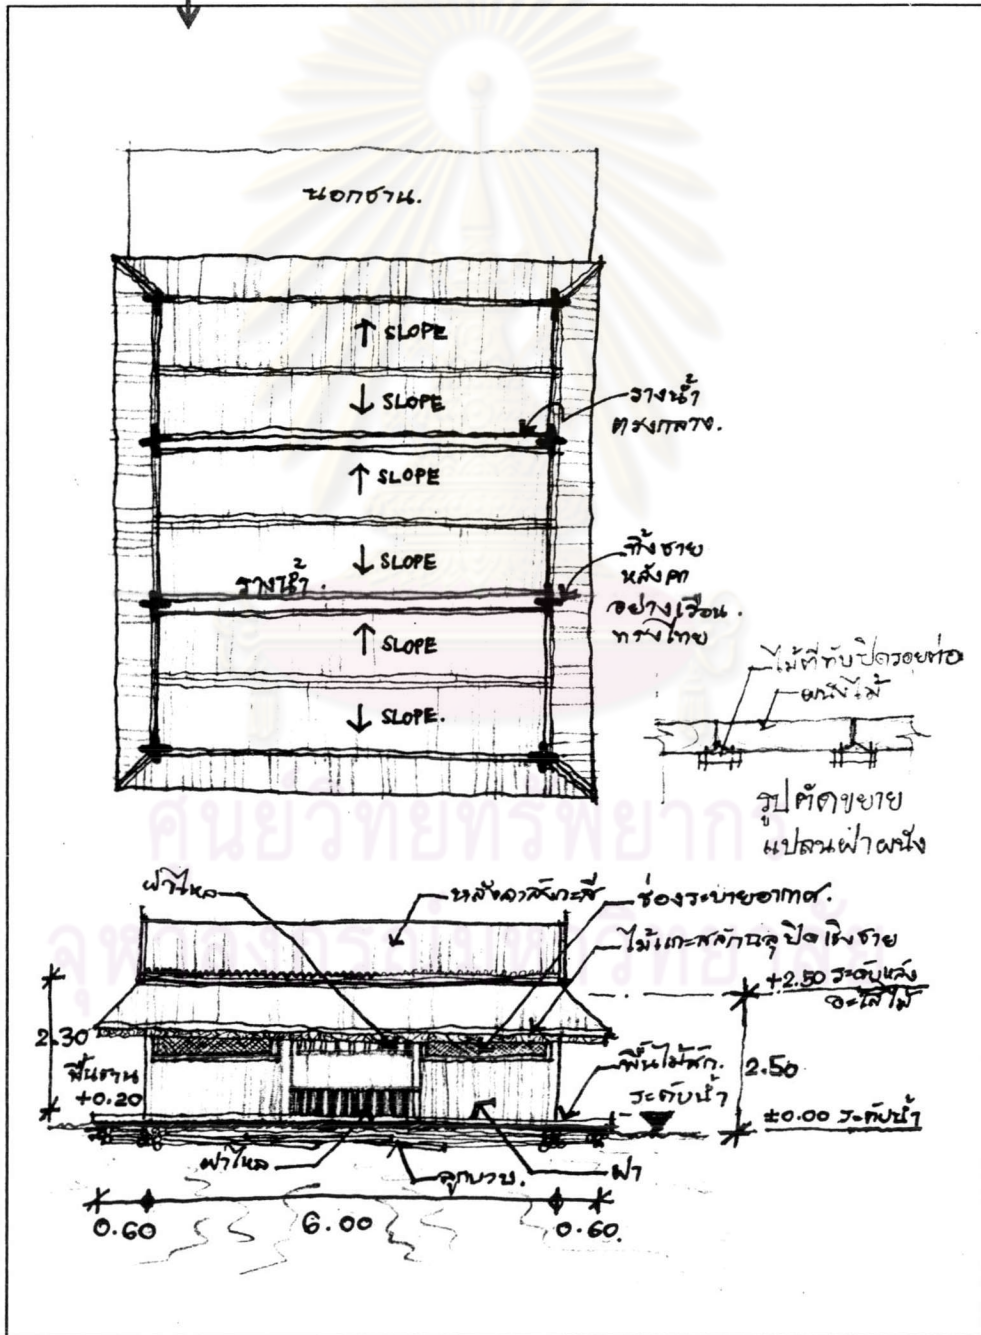 นอกชาน.
↑ SLOPE
↓ SLOPE
รางน้ำ
ตรงกลาง.
↑ SLOPE
↓ SLOPE
รางน้ำ.
ทิ้งชาย
หลังคา
อย่างเรือน.
ทรงไทย
↑ SLOPE
↓ SLOPE.
ไม้ตีทับปิดรอยต่อ
ผนังไม้
รูปตัดขยาย
แปลนฝาผนัง
ศูนย์วิทยทรัพยากร
จุฬาลงกรณ์มหาวิทยาลัย
ฝาไหล
หลังคาสังกะสี
ช่องระบายอากาศ.
ไม้แกะสลักฉลุปิดเชิงชาย
+2.50 ระดับหลัง
อะเสไม้
2.30
พื้นชาน
+0.20
พื้นไม้สัก.
ระดับน้ำ
2.50
±0.00 ระดับน้ำ
ฝาไหล
ลูกบวบ.
ฝา
0.60
6.00
0.60.